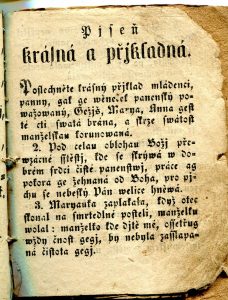 Pjseň
krásná a přjkladná.
Poslechněte krásný přjklad mládenci,
panny, gak ge wěneček panenský po-
važowaný, Gežjš, Marya, Anna gest
té cti swatá brána, a skrze swátost
manželskau korunowaná.
2. Pod celau oblohau Boží pře-
wzácné sstěstj, kde se skrýwá w do-
brém srdci čisté panenstwj, práce ag
pokora ge žehnaná od Boha, pro pj-
chu se nebeský Pán welice hněwá.
3. Maryanka zaplakala, když otec
skonal na smrtedlné posteli, manželku
wolal: manželko kde djtě mé, ossetřug
wždy čnost gegj, by nebyla zasslapa-
ná čistota gegj.